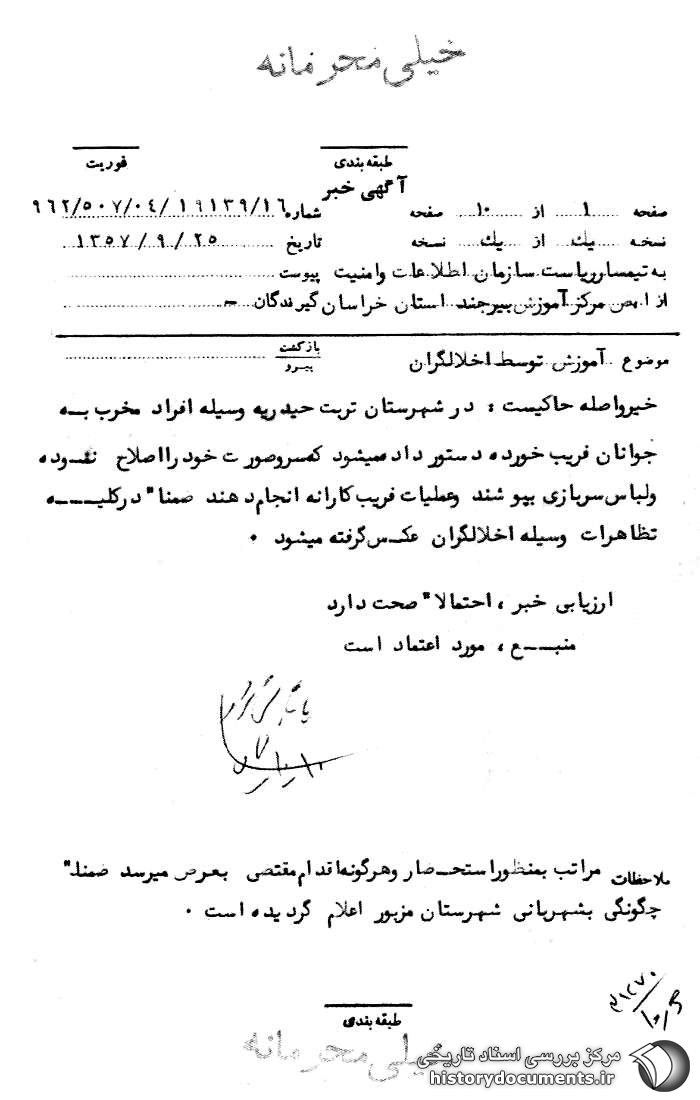 خیلی محرمانه
طبقه بندی
فوریت
آگهی خبر
صفحه ۱ از ۱۰ صفحه
شماره ۹۶۲/۵۰۷/۰۴/۱۹۱۳۹/۱۶
نسخه یك از یك نسخه
تاریخ ۱۳۵۷/۹/۲۵
به تیمسار ریاست سازمان اطلاعات وامنیت پیوست
مرکز آموزش بیرجند استان خراسان گیرندگان -
موضوع آموزش توسط اخلالگران
بازگشت
پیرو
خبرواصله حاکیست : در شهرستان تربت حیدریه وسیله افراد مخرب به
جوانان فریب خورده دستور داده میشود که سروصورت خود رااصلاح نموده
ولباس سربازی بپوشند وعملیات فریب کارانه انجام دهند ضمنا" درکلیه
تظاهرات وسیله اخلالگران عکس گرفته میشود .
ارزیابی خبر ، احتمالا" صحت دارد
منبع ، مورد اعتماد است
ملاحظات مراتب بمنظور استحضار وهرگونه اقدام مقتضی بعرض میرسد ضمنا"
چگونگی بشهربانی شهرستان مزبور اعلام گردیده است .
طبقه بندی
خیلی محرمانه
مرکز بررسی اسناد تاریخی
historydocuments.ir